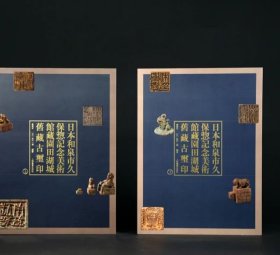 日本和泉市久
保惣記念美術
館藏園田湖城
舊藏古璽印
日本和泉市久
保惣記念美術
館藏園田湖城
舊藏古璽印